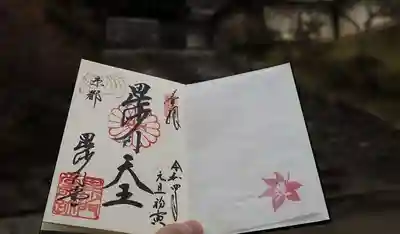 奉拝
令和四年
元旦初寅
毘沙門天王
京都
毘沙門堂